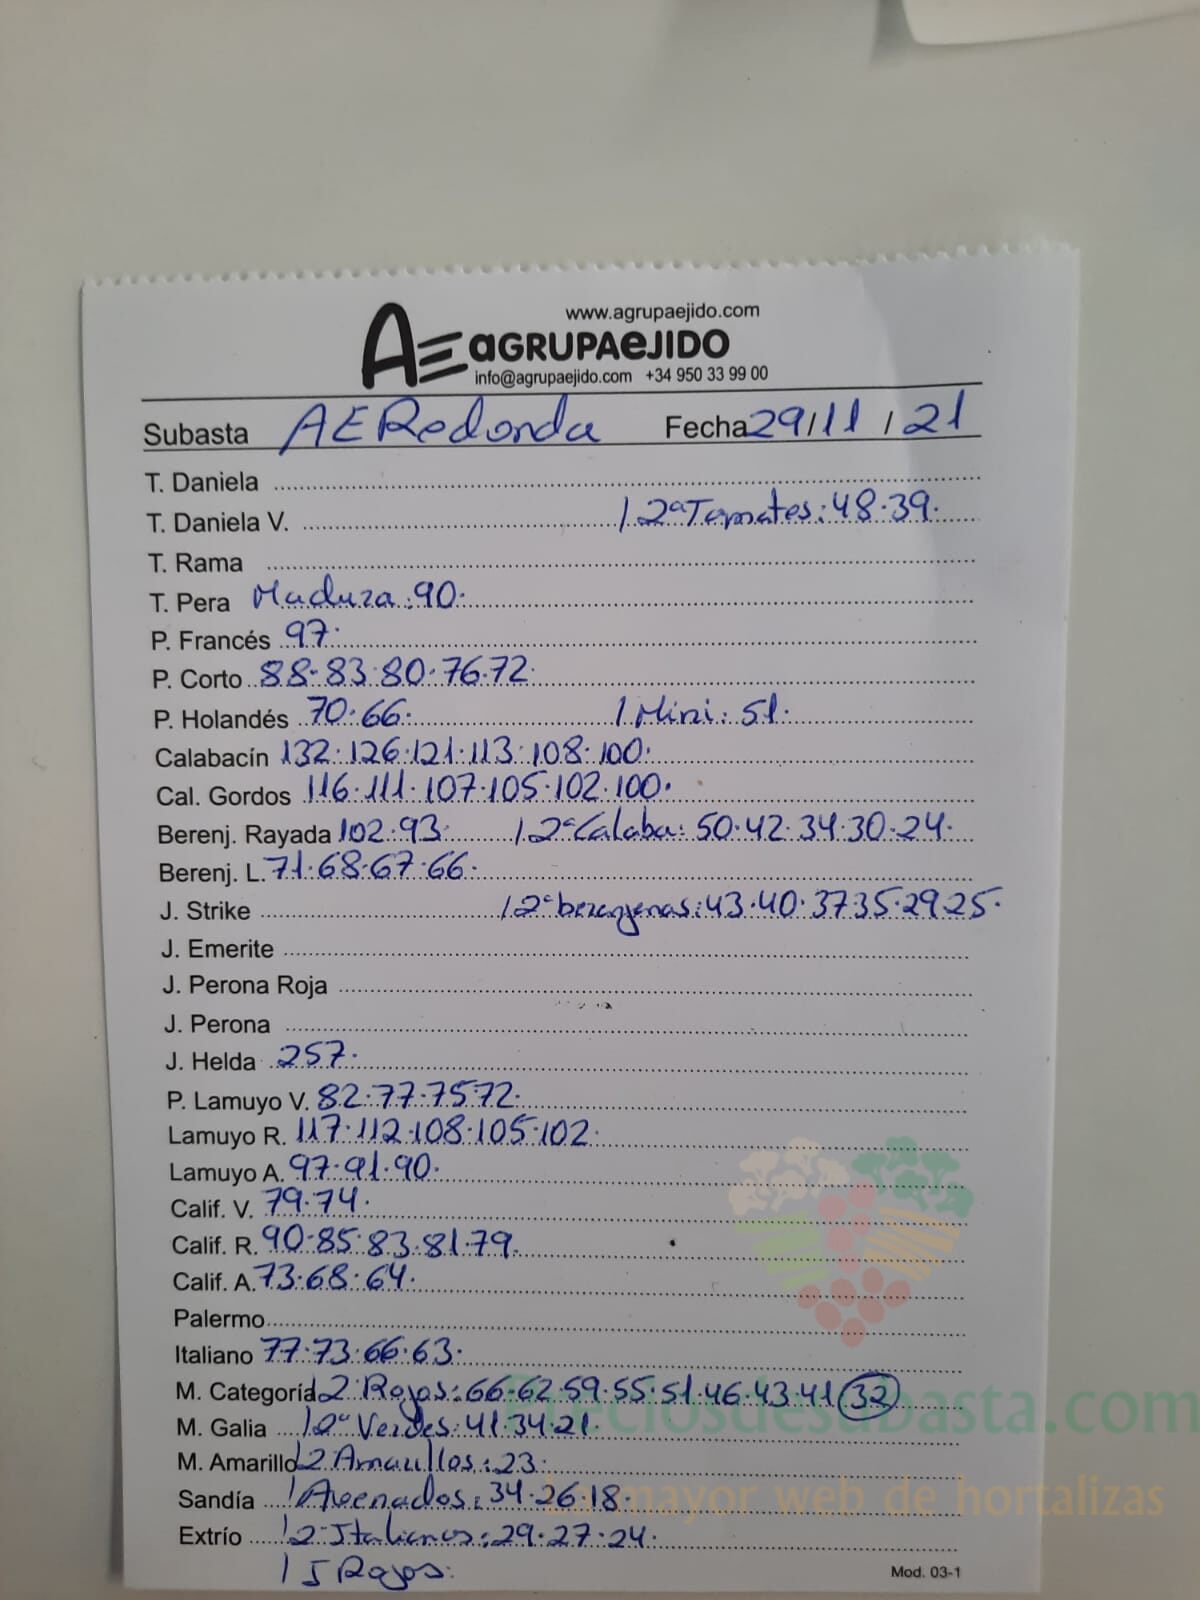 www.agrupaejido.com
AE aGRUPAeJIDO
info@agrupaejido.com +34 950 33 99 00
Subasta AERedonda Fecha 29/11/21
T. Daniela
T. Daniela V. / 2ª Tomates: 48·39·
T. Rama
T. Pera Madura: 90·
P. Francés 97·
P. Corto 88·83·80·76·72·
P. Holandés 70·66· / Mini: 51·
Calabacín 132·126·121·113·108·100·
Cal. Gordos 116·111·107·105·102·100·
Berenj. Rayada 102·93· / 2ª Calaba: 50·42·34·30·24·
Berenj. L. 71·68·67·66·
J. Strike / 2ª berenjenas: 43·40·37·35·29·25·
J. Emerite
J. Perona Roja
J. Perona
J. Helda 257·
P. Lamuyo V. 82·77·75·72·
Lamuyo R. 117·112·108·105·102·
Lamuyo A. 97·91·90·
Calif. V. 79·74·
Calif. R. 90·85·83·81·79·
Calif. A. 73·68·64·
Palermo
Italiano 77·73·66·63·
M. Categoría / 2ª Rojos: 66·62·59·55·51·46·43·41 (32)
Preciosdesubasta.com
M. Galia / 2ª Verdes: 41·34·21
M. Amarillo / 2 Amarillos: 23·
Sandía / Asenados: 34·26·18·
La mayor web de hortalizas
Extrío / 2ª Italianos: 29·27·24·
/ I Rojos:
Mod. 03-1